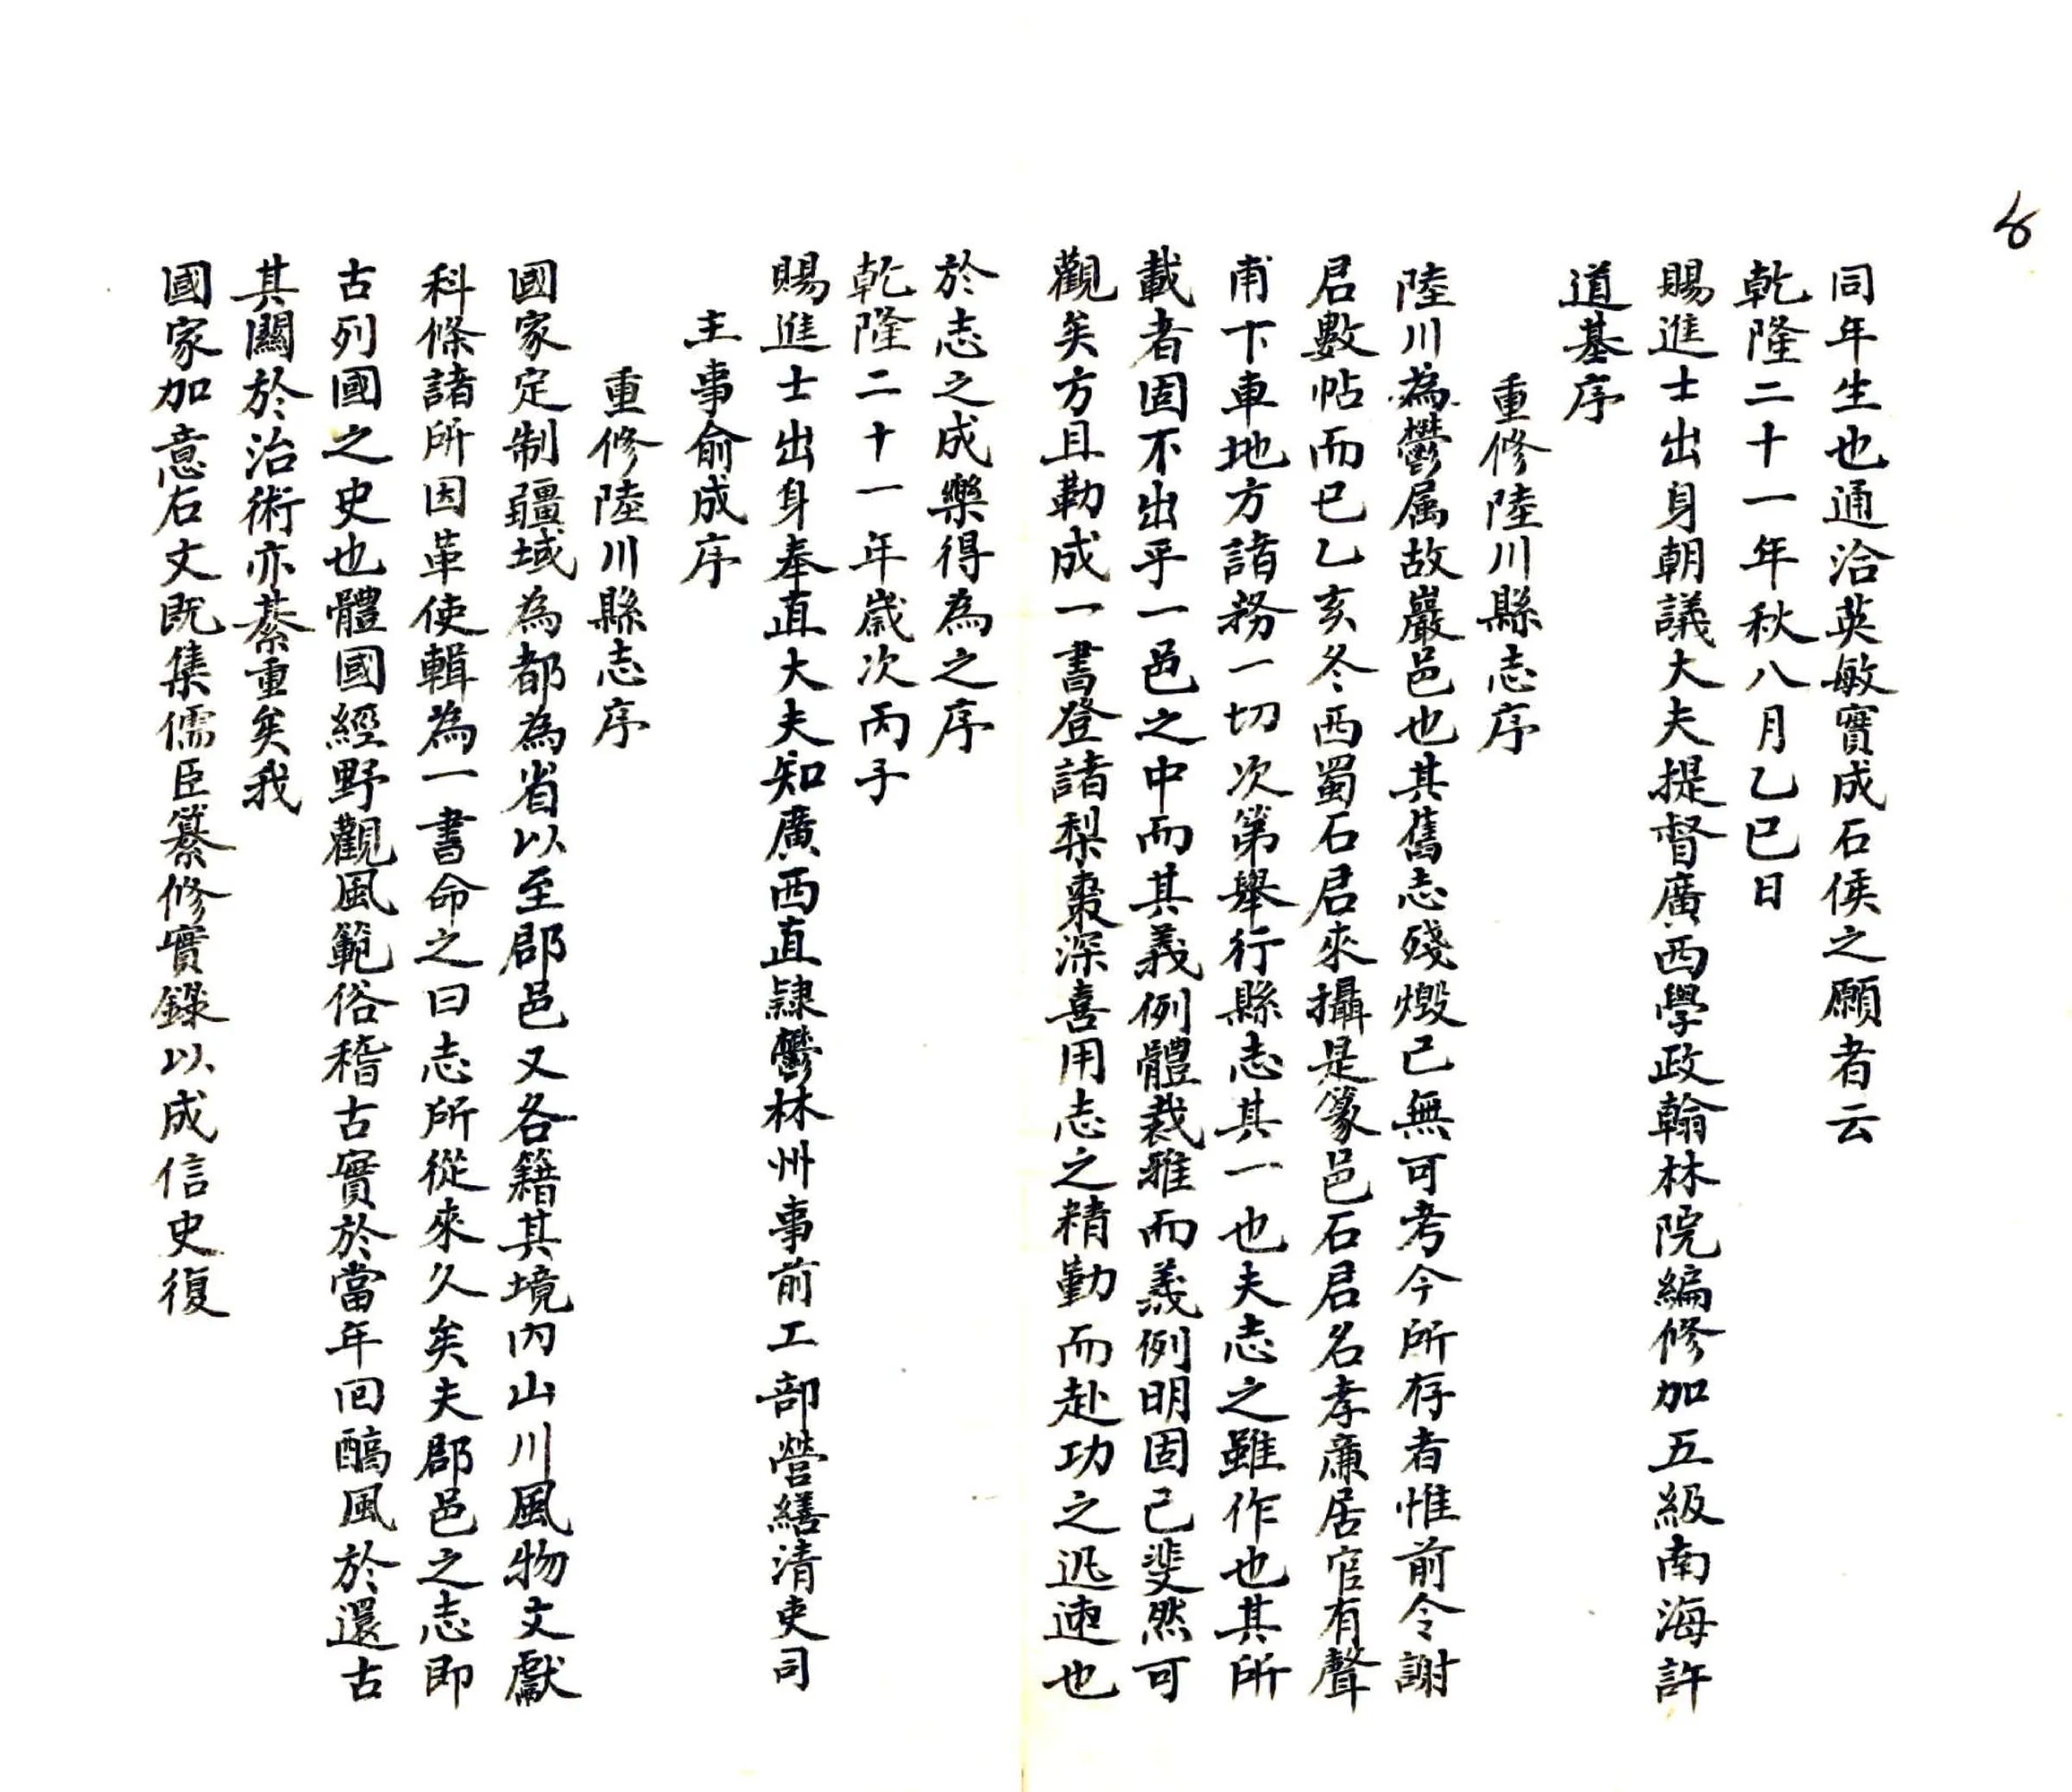 8
同年生也通洽英敏實成石侯之願者云
乾隆二十一年秋八月乙巳日
賜進士出身朝議大夫提督廣西學政翰林院編修加五級南海許
道基序
重修陸川縣志序
陸川為鬱属故巖邑也其舊志殘燬已無可考今所存者惟前令謝
君數帖而已乙亥冬西蜀石君來攝是篆邑石君名孝廉居官有聲
甫下車地方諸務一切次第舉行縣志其一也夫志之雖作也其所
載者固不出乎一邑之中而其義例體裁雅而義例明固已斐然可
觀矣方且勒成一書登諸梨棗深喜用志之精勤而赴功之迅速也
於志之成樂得為之序
乾隆二十一年嵗次丙子
賜進士出身奉直大夫知廣西直隸鬱林州事前工部營繕清吏司
主事俞成序
重修陸川縣志序
國家定制疆域為都為省以至郡邑又各籍其境內山川風物文獻
科條諸所因革使輯為一書命之曰志所從來久矣夫郡邑之志即
古列國之史也體國經野觀風範俗稽古實於當年回醕風於還古
其關於治術亦綦重矣我
國家加意右文既集儒臣纂修實錄以成信史復